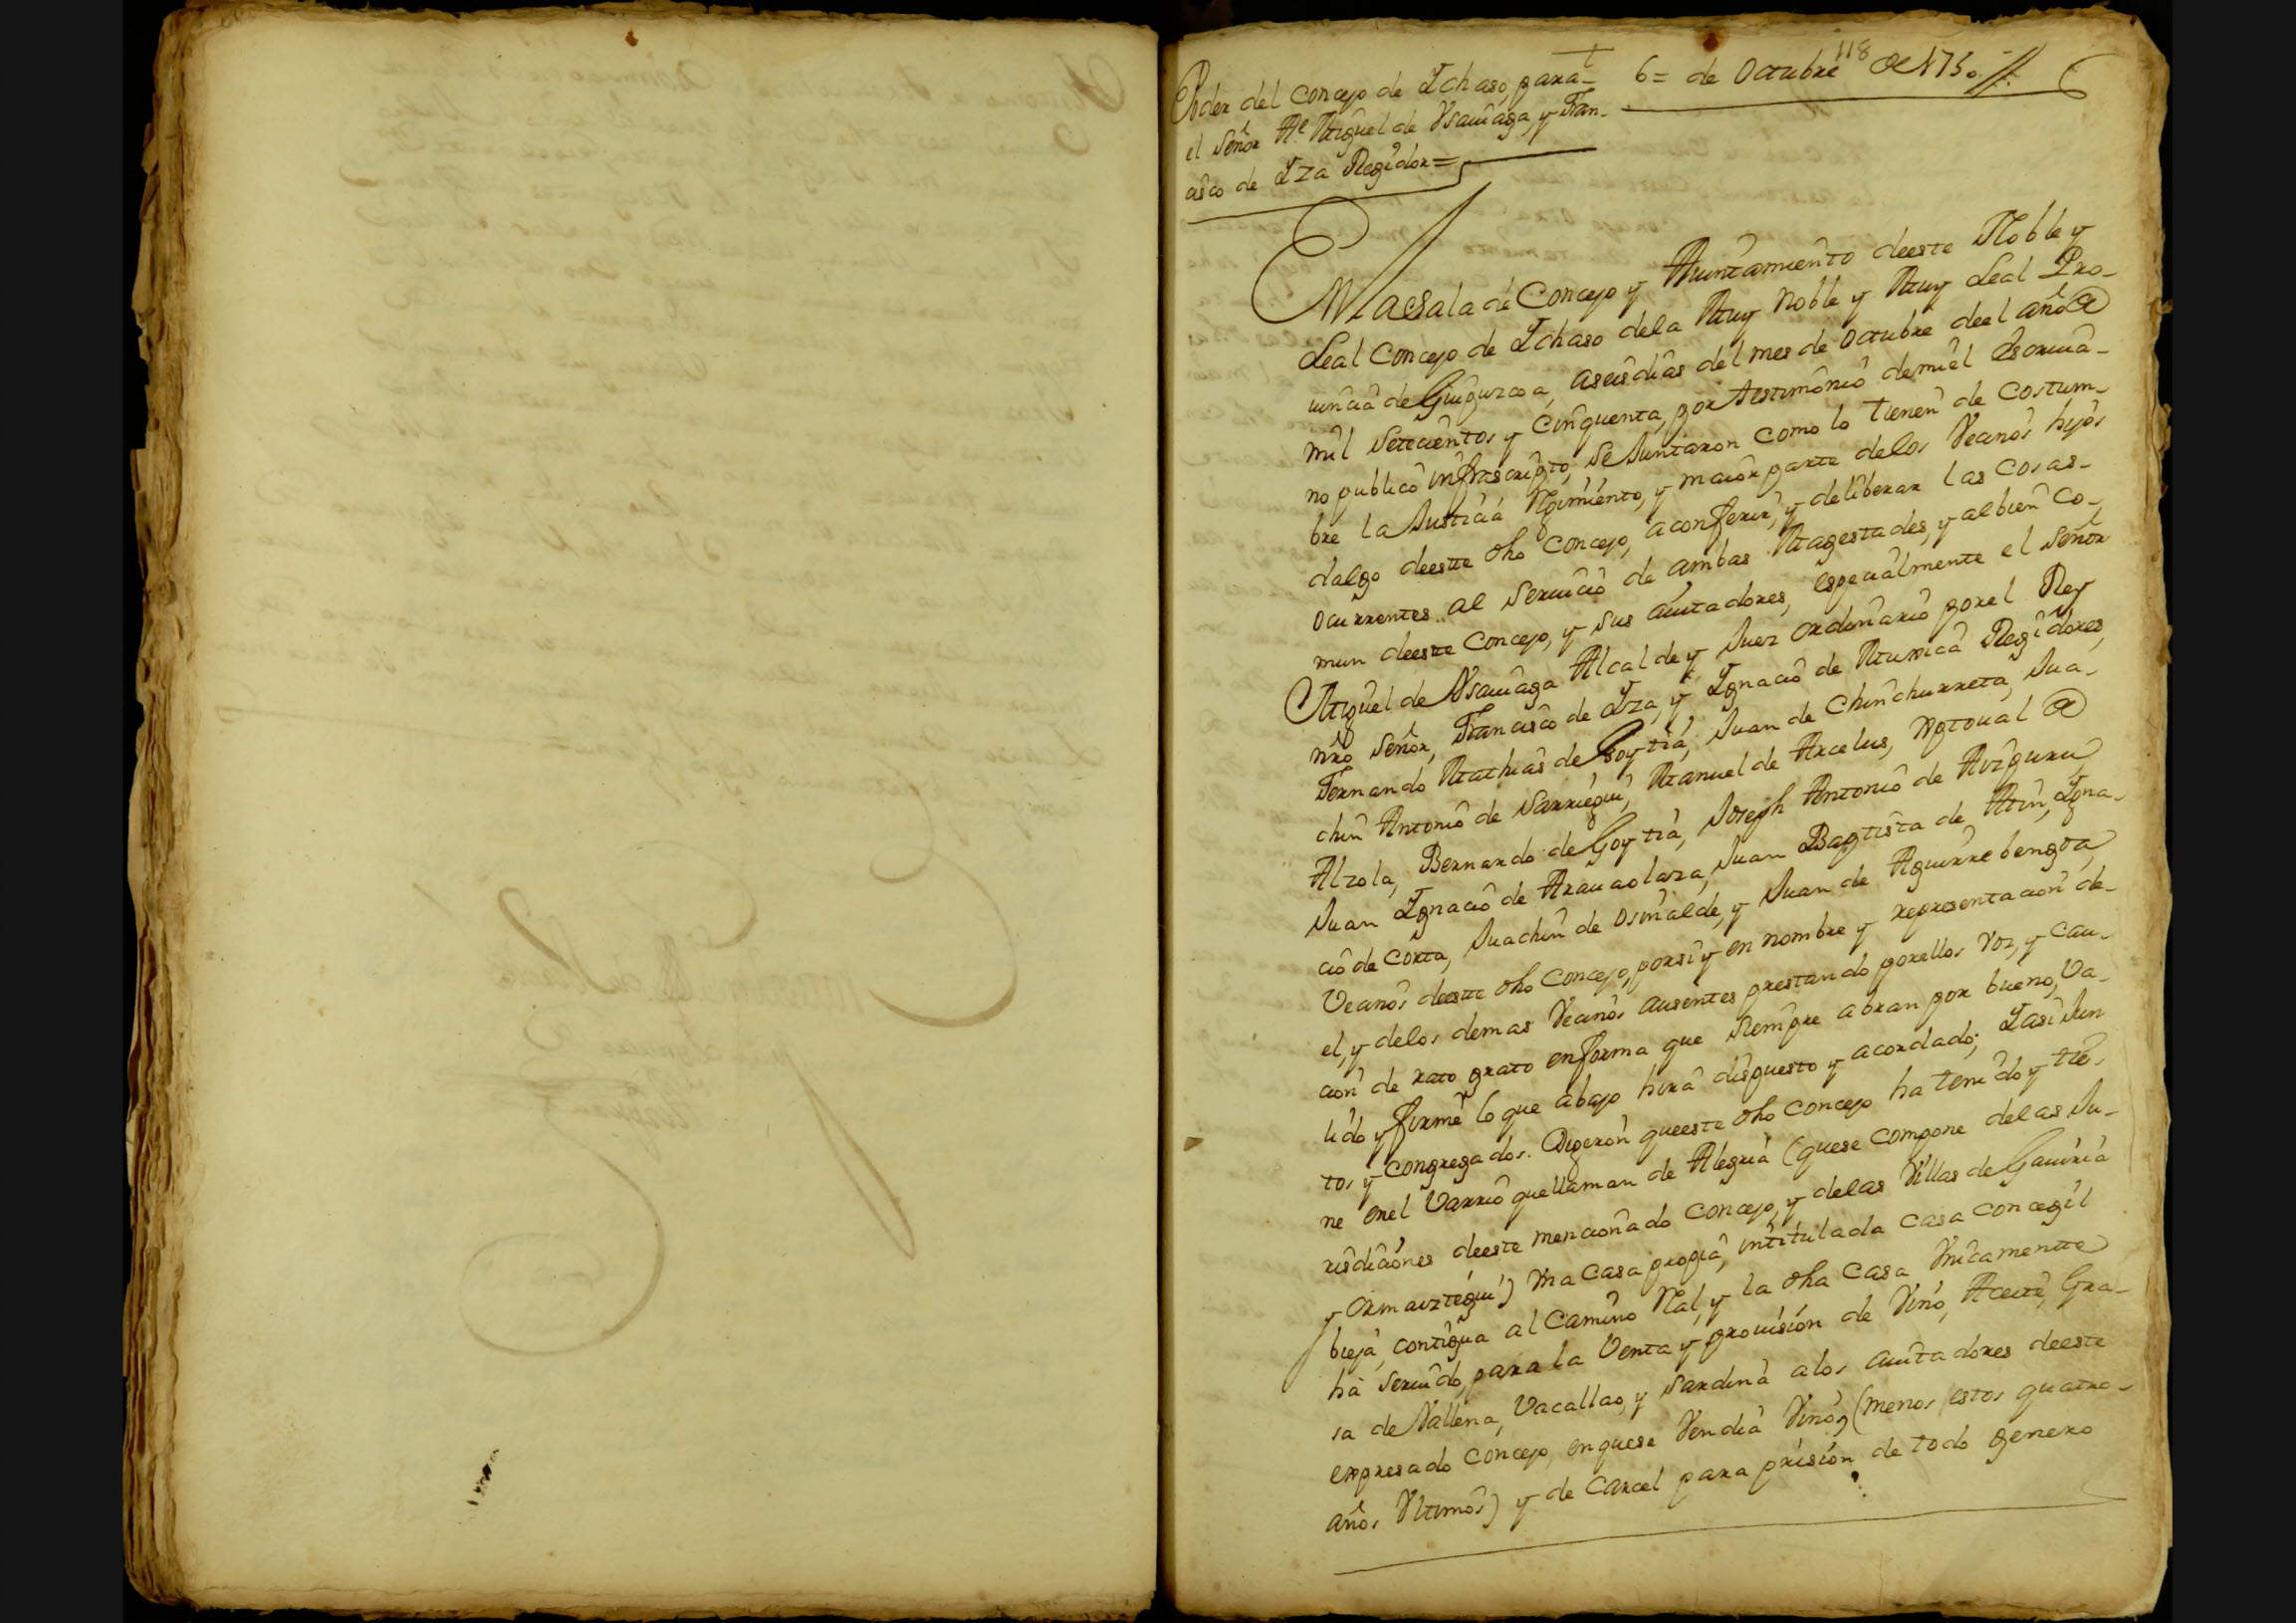 118
Poder del Concejo de Ichaso, para
el Señor Al.e Miguel de Ysauiaga, y Fran-
cisco de Yza Regidor=
6= de Octubre de 1750.
En la Sala de Concejo y Aiuntamiento deeste Noble y
Leal Concejo de Ichaso dela Muy Noble y Muy Leal Pro-
uincia de Guipuzcoa, aseis dias del mes de Octubre deel año de
mil Setecientos y Cinquenta, por testimonio demi el Escriua-
no publico infrascripto, se Juntaron como lo tienen de costum-
bre la Justicia Rejimiento, y maior parte delos Vecinos hijos
dalgo deestte dho Concejo, aconferir, y deliberar las cosas-
ocurrentes al seruicio de ambas Magestades, y albien Co-
mun deestte Concejo, y sus auitadores, especialmente el Señor
Miguel de Ysauiaga Alcalde y Juez ordinario porel Rey
nro Señor, Francisco de Yza, y Ignacio de Munica Regidores,
Fernando Mathias de Goytia, Juan de Chinchurreta, Jua-
chin Antonio de Sarriegui, Manuel de Arcelus, Xptoual de
Alzola, Bernardo de Goytia, Joseph Antonio de Auzpuru,
Juan Ignacio de Arauaolaza, Juan Baptista de Atin, Igna-
cio de Corta, Juachin de Osinalde, y Juan de Aguirrebengoa,
Vecinos deestte dho Concejo, porsi y en nombre y representacion de-
el, y delos demas Vecinos ausentes prestando porellos voz, y cau-
cion de rato grato enforma que siempre abran por bueno, Va-
lido y firme lo que abajo hira dispuesto y acordado; Iasi Jun
tos y Congregados. Dijeron queeste dho Concejo ha tenido y tie-
ne enel Varrio quellaman de Alegria (quese compone delas Ju-
risdiciones deeste mencionado Concejo, y delas Villas de Gauiria
y Ormaiztegui) Vna Casa propia, intitulada casa concegil
bieja, contigua al Camino Rl, y la dha Casa Vnicamentte
ha seruido, para la Venta y prouision de Vino, Aceite, Gra-
sa de Vallena, Vacallao, y Sardina alos auitadores deeste
expresado Concejo, enquese Vendia Vino, (menos estos quatro-
años Vltimos) y de Carcel para prision de todo genero